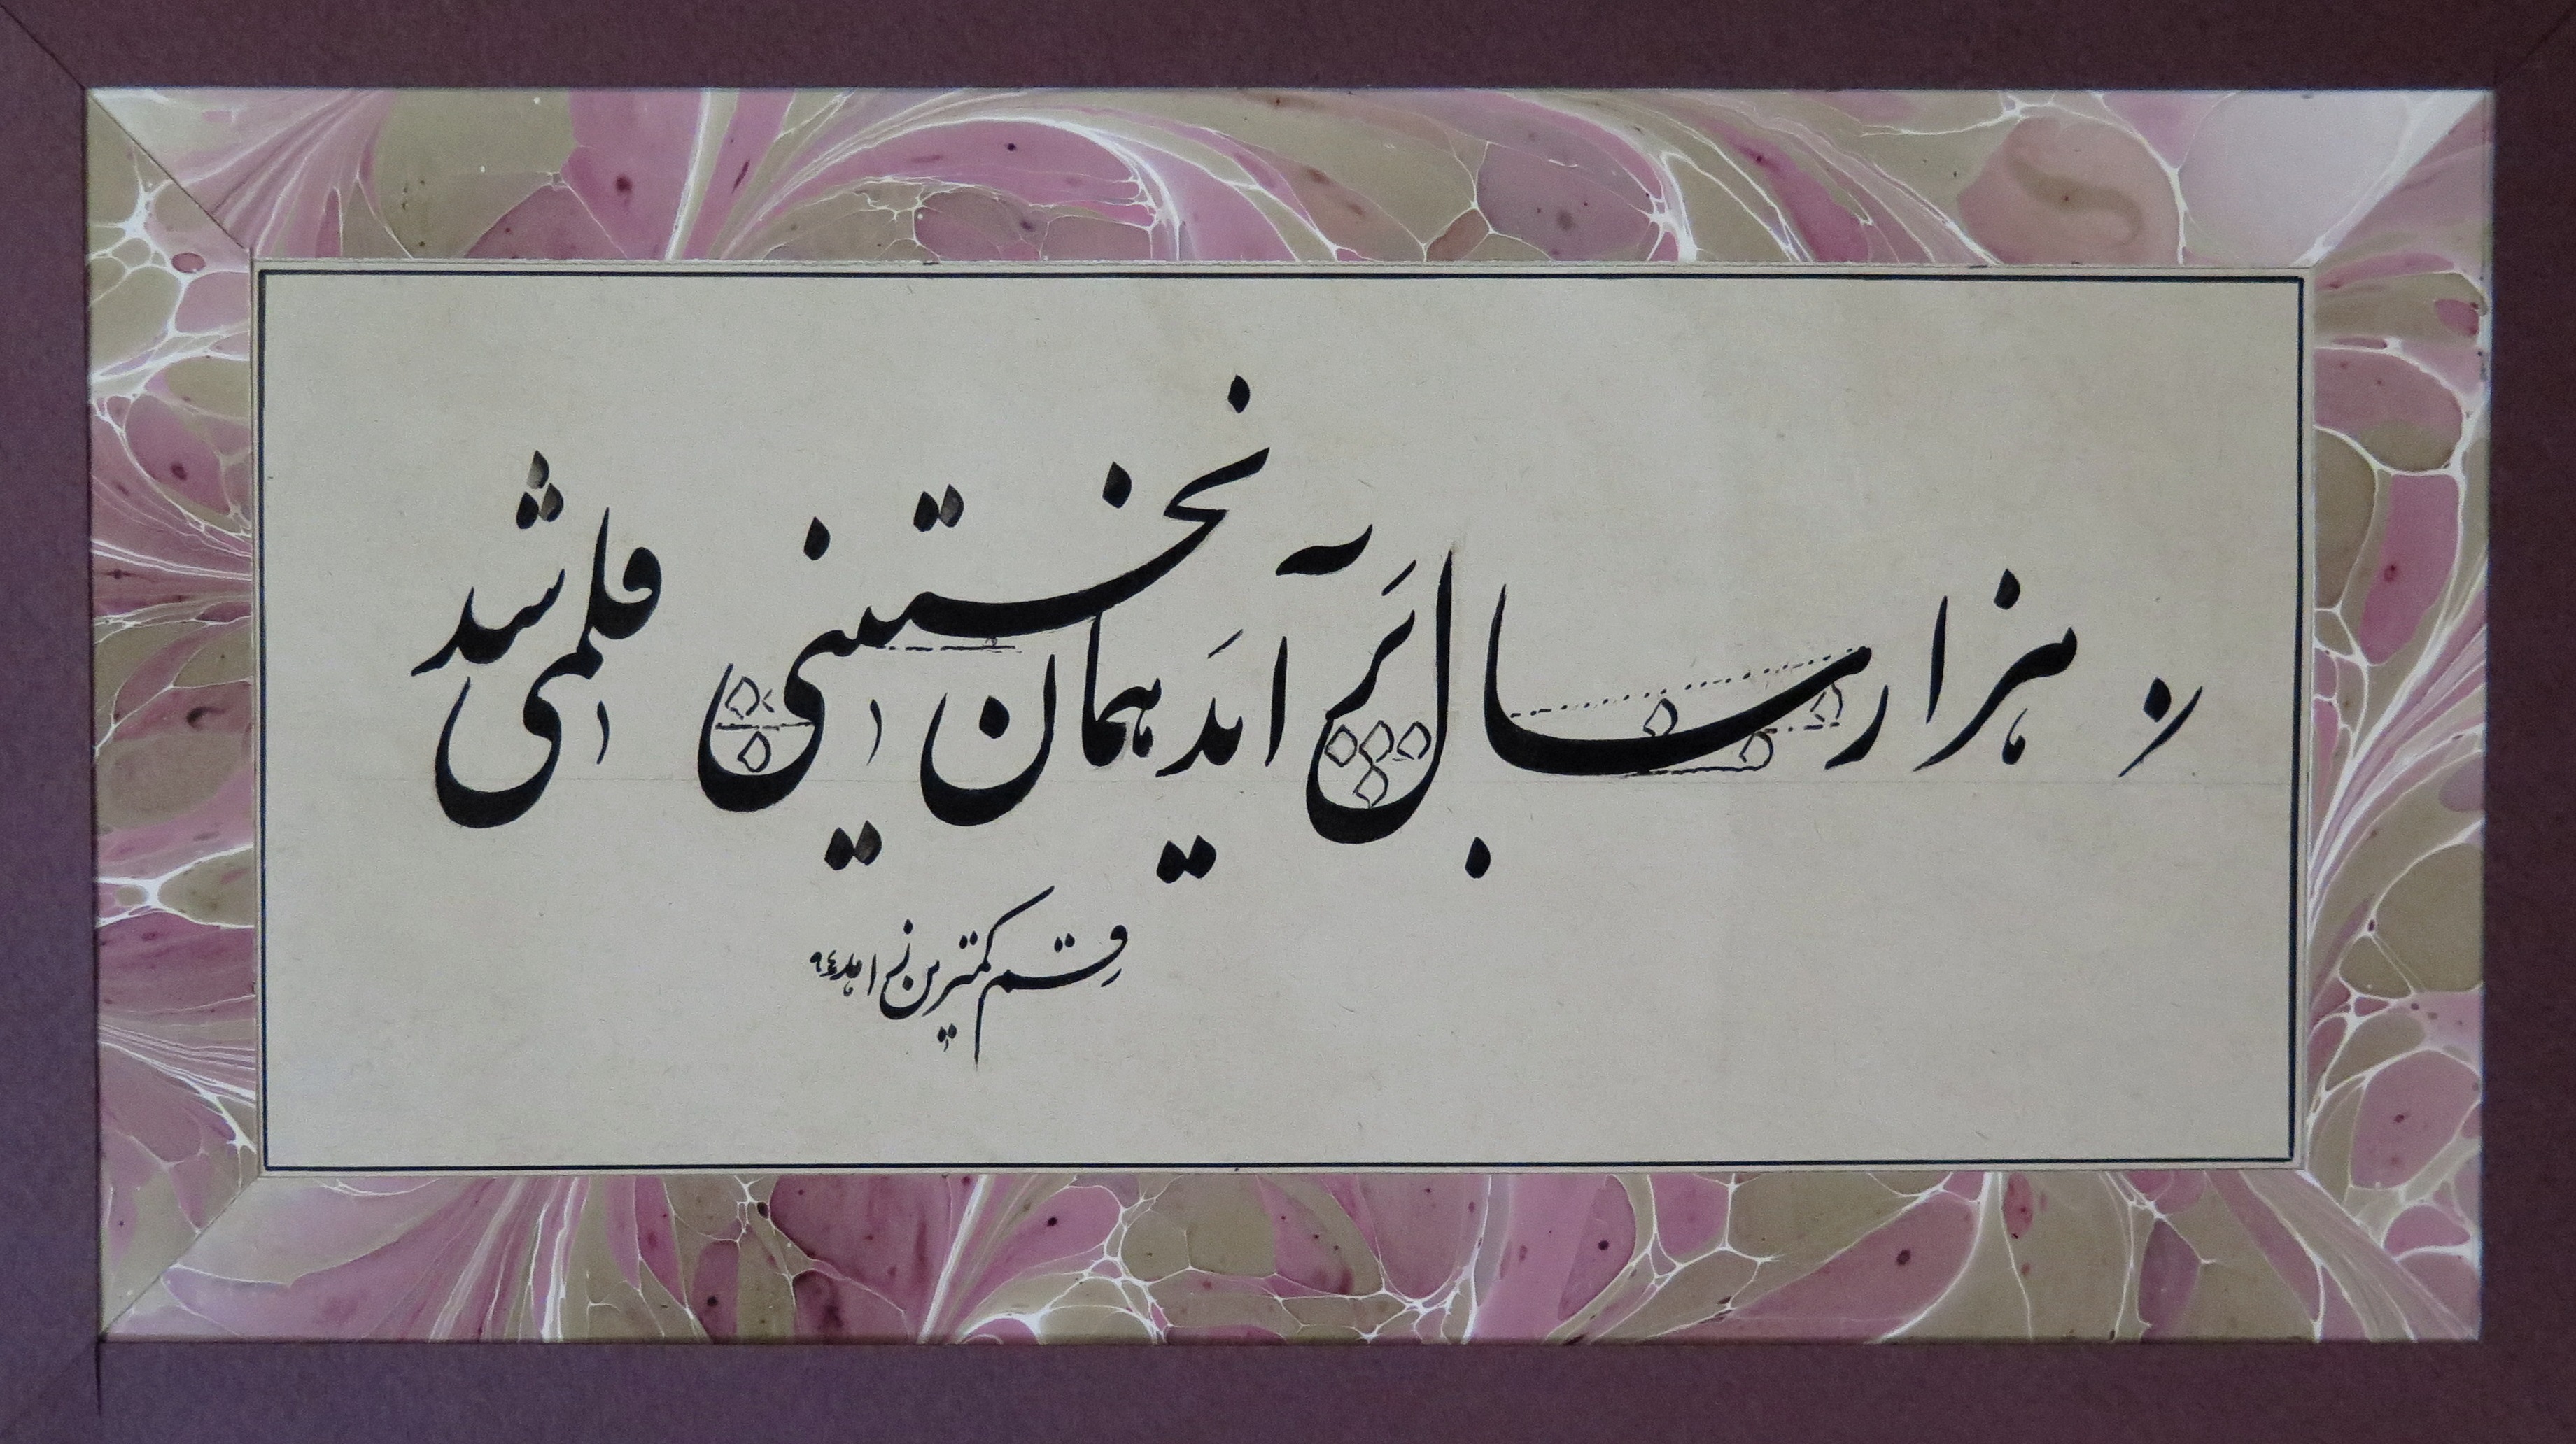 هزار سال برآید همان نخستینی قلمی شد
رقم کمترین زاهد ۹٤